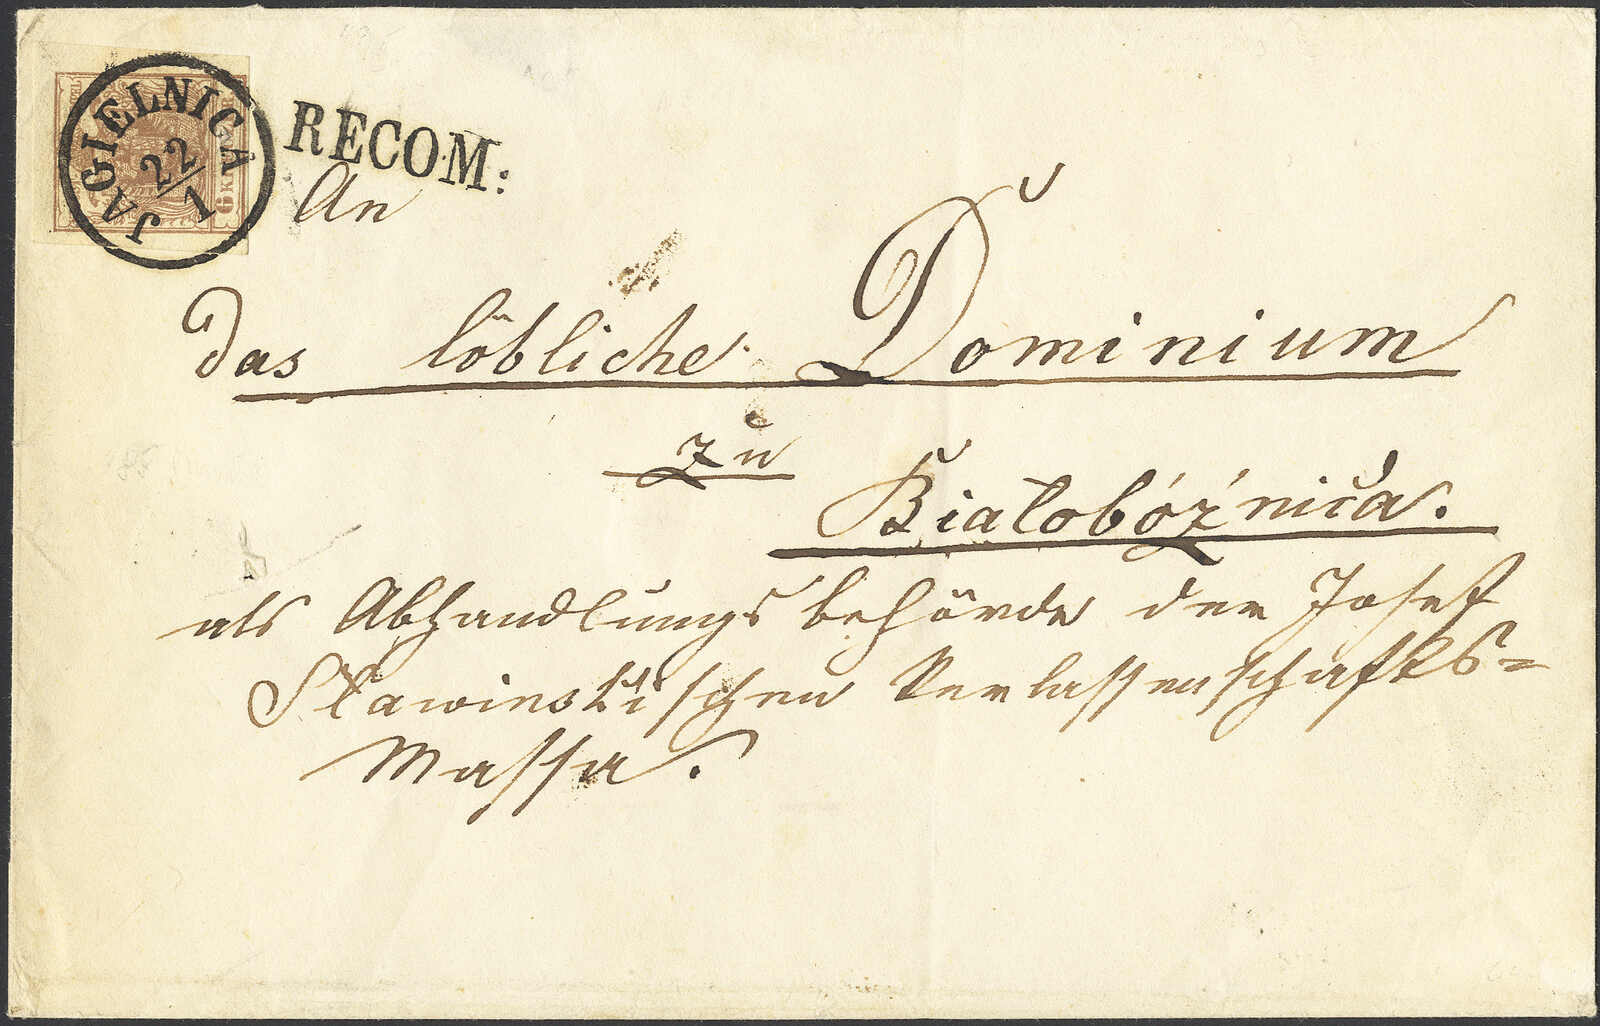 JAGIELNICA
22/1
6 KR
RECOM:
An
das löbliche Dominium
zu
Białobóżnica.
als Abhandlungsbehörde der Josef
Sławinskischen Verlassenschafts=
Massa.